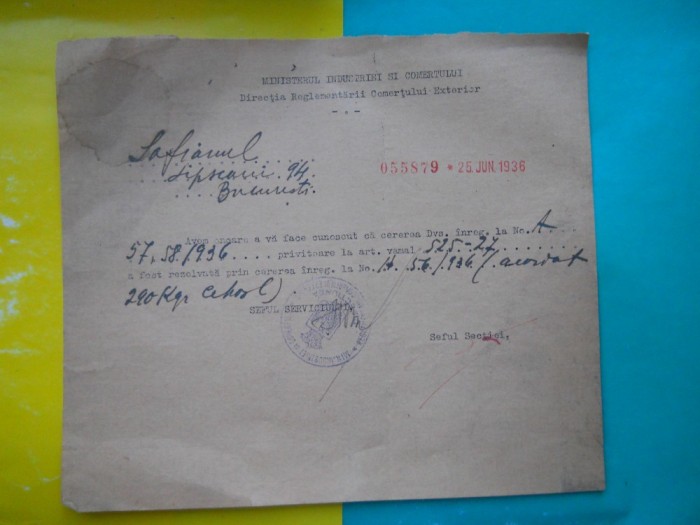 MINISTERUL INDUSTRIEI SI COMERTULUI
Direcţia Reglementării Comerţului Exterior
-.-
Safianul
Lipscani 94
Bucureşti.
055879 * 25.JUN.1936
Avem onoare a vă face cunoscut că cererea Dvs. înreg. la No. A
57,58/936 .... privitoare la art. vamal 525.-27
a fost rezolvată prin cererea înreg. la No. A 56/936 (acordat
290 Kgr Cehosl)
SEFUL SERVICIULUI,
Seful Secţiei,